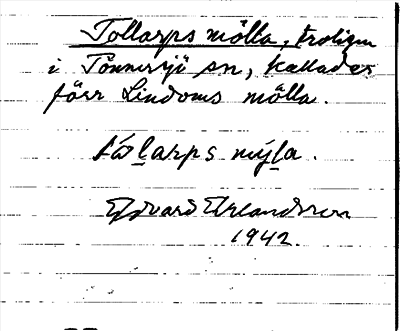 Tollarps mölla, troligen
i Tönnersjö sn, kallades
förr Lindoms mölla.
tålarps mýla.
Edvard Erlandsson
1942.